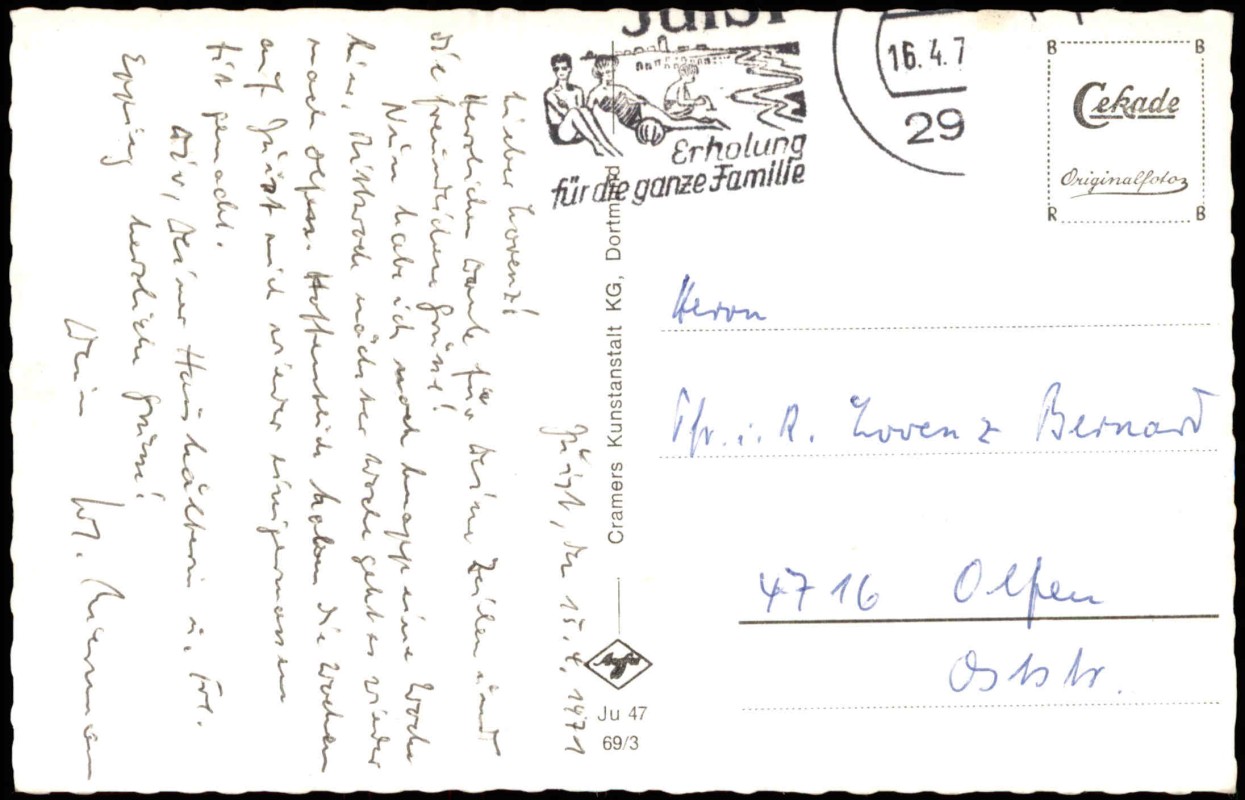 Juist
Erholung
für die ganze Familie
16.4.7
29
B B
Cekade
Originalfotos
R B
Juist, den 15.4.1971
Lieber Lorenz!
Herzlichen Dank für Deine Zeilen und
die freundlichen Grüße!
Nun habe ich noch knapp eine Woche
hier. Mittwoch nächster Woche geht es wieder
nach Olfen. Hoffentlich haben die Wochen
auf Juist mich wieder einigermassen
fit gemacht.
Dir, Deiner Haushälterin u. Frl.
Epping herzliche Grüsse!
Dein
Cramers Kunstanstalt KG, Dortmund
Agfa
Ju 47
69/3
Herrn
Pfr. i. R. Lorenz Bernard
4716 Olfen
Oststr.